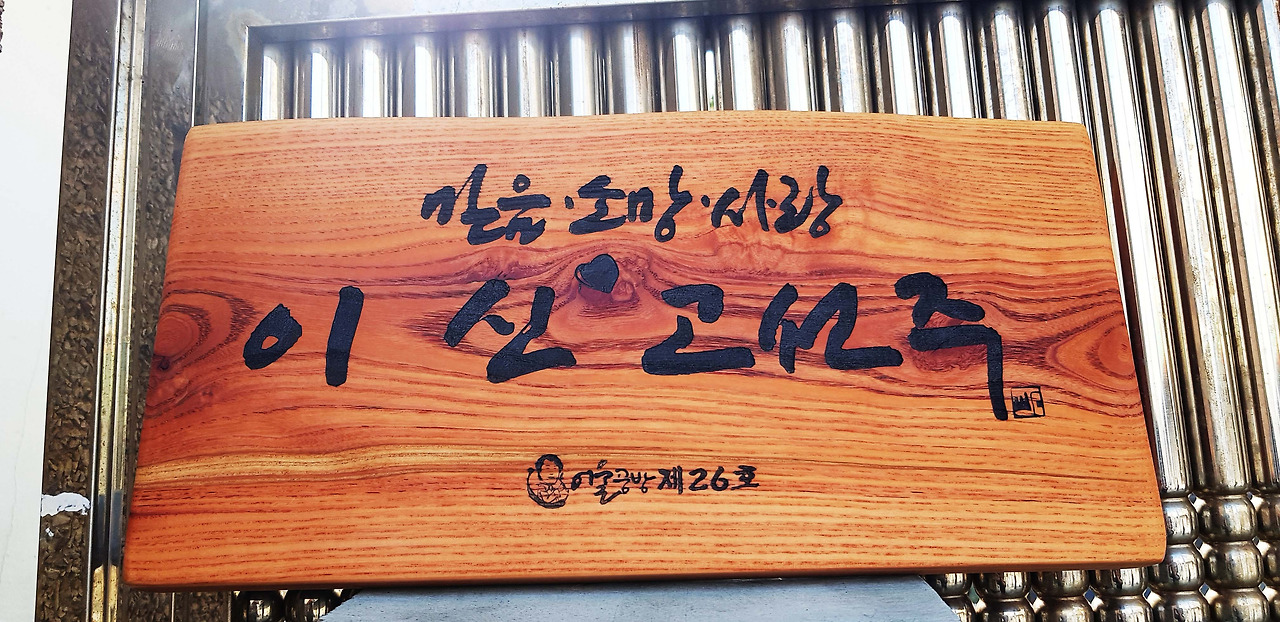 믿음·소망·사랑
이신 고선주
어울공방 제26호